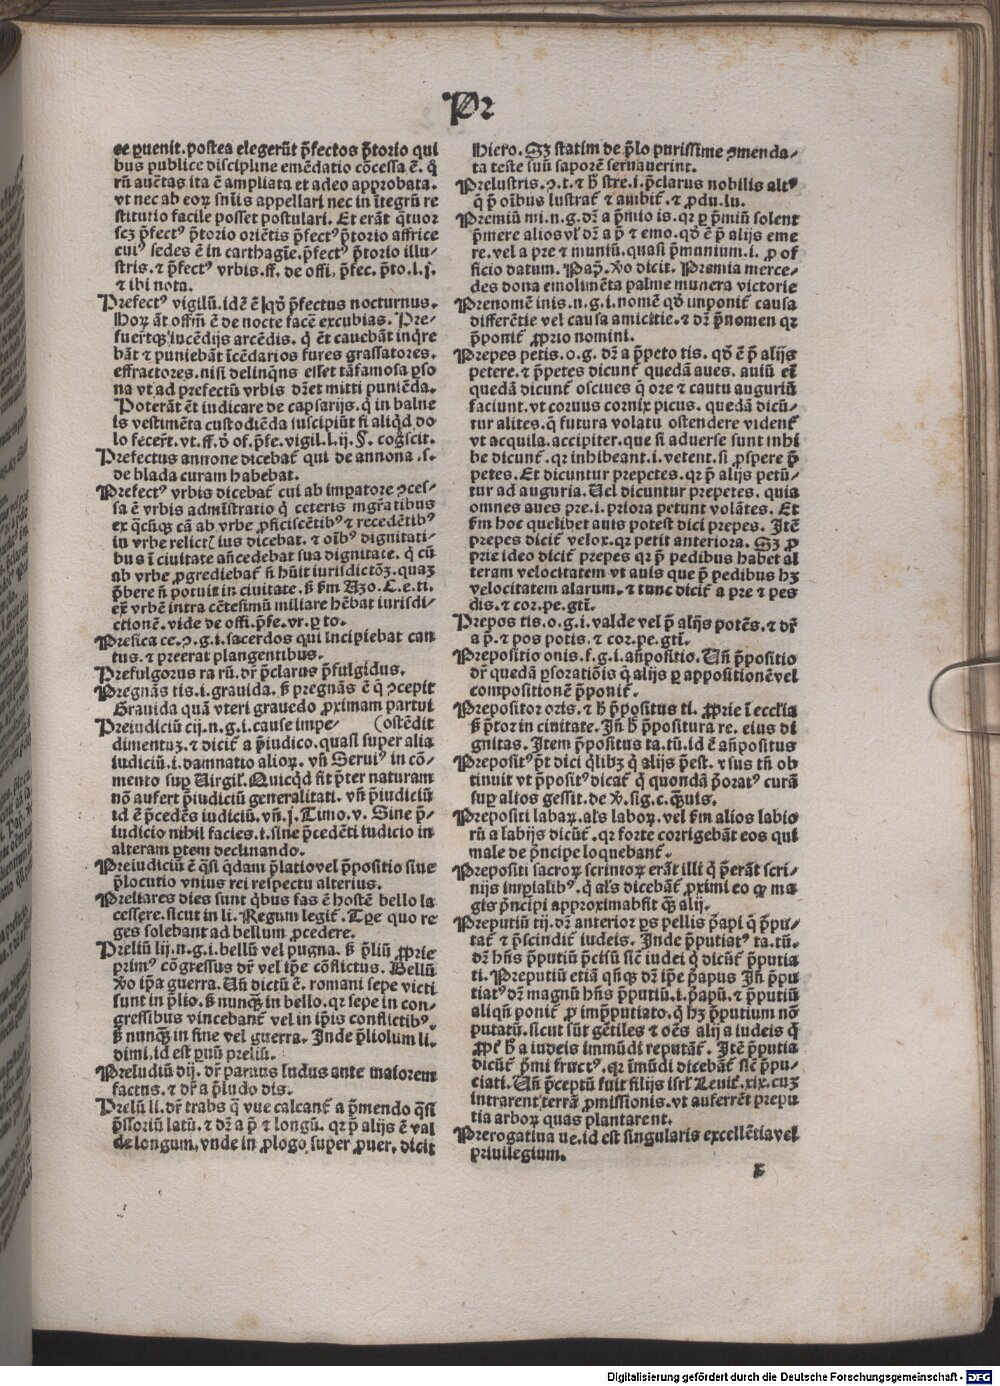 Pr
ee ꝑuenit. postea elegerūt p̄fectos p̄torio qui
bus publice discipline emēdatio cōcessa ē. q̄
rū auc̄tas ita ē ampliata et adeo approbata.
vt nec ab eoꝝ sn̄iis appellari nec in ītegrū re
stitutio facile posset postulari. Et erāt q̄tuor
scꝫ p̄fectꝰ p̄torio oriētis p̄fectꝰ p̄torio affrice
cuiꝰ sedes ē in carthagīe. p̄fectꝰ p̄torio illu-
stris. ⁊ p̄fectꝰ vrbis. ff. de offi. p̄fec. p̄to. l. j.
⁊ ibi nota.
Prefectꝰ vigilū. idē ē qd̓ p̄fectus nocturnus.
Hoꝝ āt offm̄ ē de nocte facē excubias. Pre-
fuerūtqꝫ īncēdijs arcēdis. q̄ ēt cauebāt inq̄re
bāt ⁊ puniebāt īcēdarios fures grassatores.
effractores. nisi delinq̄ns esset tā famosa ꝑso
na vt ad prefectū vrbis dr̄et mitti puniēda.
Poterāt ēt iudicare de capsarijs. q̄ in balne
is vestimēta custodiēda suscipiūt si aliqd̓ do
lo fecer̄t. vt. ff. d̓ of. p̄fe. vigil. l. ij. §. cog̓scit.
Prefectus annone dicebat̄ qui de annona .s.
de blada curam habebat.
Prefectꝰ vrbis dicebat̄ cui ab imꝑatore ꝯces-
sa ē vrbis admīstratio q̄ ceteris mgr̄atibus
ex q̄cūqꝫ cā ab vrbe ꝓficiscētibꝰ ⁊ recedētibꝰ
in vrbe relict̄ ius dicebat. ⁊ oībꝰ dignitati-
bus ī ciuitate an̄cedebat sua dignitate. q̄ cū
ab vrbe ꝓgrediebat̄ n̄ hūit iurisdictōꝫ. quaꝫ
p̄bere n̄ potuit in ciuitate. ẞ ẞm Azo. C. e. ti.
ex̄ vrbē intra cētesimū miliare hēbat iurisdi-
ctionē. vide de offi. p̄fe. vr. ꝑ to.
Prefica ce. ꝯ. g. i. sacerdos qui incipiebat can
tus. ⁊ preerat plangentibus.
Prefulgorus ra rū. dr̄ p̄clarus p̄fulgidus.
Pregnās tis. i. grauida. ẞ pregnās ē q̄ ꝯcepit
Grauida quā vteri grauedo ꝓximam partui
Preiudiciū cij. n. g. i. cause impe- (ostēdit
dimentuꝫ. ⁊ dicit̄ a p̄iudico. quasi super alia
iudiciū. i. damnatio alioꝝ. vn̄ Seruiꝰ in cō-
mento suꝑ Virgil̓. Quicqd̓ fit p̄ter naturam
nō aufert p̄iudiciū generalitati. vn̄ p̄iudiciū
id ē p̄cedēs iudiciū. vn̄. j. Timo. v. Sine p̄-
iudicio nihil facies. i. sine p̄cedēti iudicio in
alteram ꝑtem declinando.
Preiudiciū ē q̄si q̄dam p̄latio vel p̄positio siue
p̄locutio vnius rei respectu alterius.
Preliares dies sunt q̄bus fas ē hostē bello la
cessere. sicut in li. Regum legit̄. Tꝑe quo re
ges solebant ad bellum ꝓcedere.
Preliū lij. n. g. i. bellū vel pugna. ẞ p̄liū ꝓprie
primꝰ cōgressus dr̄ vel ip̄e cōflictus. Bellū
v̓o ip̄a guerra. Un̄ dictū ē. romani sepe victi
sunt in p̄lio. ẞ nunqꝫ in bello. qꝛ sepe in con-
gressibus vincebant̄ vel in ip̄is conflictibꝰ.
ẞ nunqꝫ in fine vel guerra. Inde p̄liolum li.
dimi. id est ꝑuū preliū.
Preludiū dij. dr̄ paruus ludus ante maiorem
factus. ⁊ dr̄ a p̄ludo dis.
Prelū li. dr̄ trabs q̄ vue calcant̄ a p̄mendo q̄si
p̄ssoriū latū. ⁊ dr̄ a p̄ ⁊ longū. qꝛ p̄ alijs ē val
de longum. vnde in ꝓlogo super ꝓuer. dicit
Hiero. Sꝫ statim de p̄lo purissime ꝯmenda-
ta teste suū saporē seruauerint.
Prelustris. ꝯ. t. ⁊ h̓ stre. i. p̄clarus nobilis altꝰ
q̄ p̄ oībus lustrat̄ ⁊ ambit̄. ⁊ ꝓdu. lu.
Premiū mi. n. g. dr̄ a p̄mio is. qꝛ ꝑ p̄miū solent
p̄mere alios vl̓ dr̄ a p̄ ⁊ emo. qd̓ ē p̄ alijs eme
re. vel a pre ⁊ muniū. quasi p̄manium. i. ꝓ of
ficio datum. Pap̄. v̓o dicit. Premia merce-
des dona emolumēta palme munera victorie
Prenomē inis. n. g. i. nomē qd̓ imponit̄ causa
differētie vel causa amicitie. ⁊ dr̄ p̄nomen qꝛ
p̄ponit̄ ꝓprio nomini.
Prepes petis. o. g. dr̄ a p̄peto tis. qd̓ ē p̄ alijs
petere. ⁊ p̄petes dicunt̄ quedā aues. auiū em̄
quedā dicunt̄ oscines q̄ ore ⁊ cantu auguriū
faciunt. vt coruus cornix picus. quedā dicū-
tur alites. q̄ futura volatu ostendere vident̄
vt acquila. accipiter. que si aduerse sunt inhi
be dicunt̄. qꝛ inhibeant. i. vetent. si ꝓspere p̄
petes. Et dicuntur prepetes. qꝛ p̄ alijs petū-
tur ad auguria. Uel dicuntur prepetes. quia
omnes aues pre. i. priora petunt volātes. Et
ẞm hoc quelibet auis potest dici prepes. Itē
prepes dicit̄ velox. qꝛ petit anteriora. Sꝫ ꝓ
prie ideo dicit̄ prepes qꝛ p̄ pedibus habet al
teram velocitatem vt auis que p̄ pedibus hꝫ
velocitatem alarum. ⁊ tunc dicit̄ a pre ⁊ pes
dis. ⁊ cor. pe. gti̓.
Prepos tis. o. g. i. valde vel p̄ alijs potēs. ⁊ dr̄
a p̄. ⁊ pos potis. ⁊ cor. pe. gti̓.
Prepositio onis. f. g. i. an̄positio. Un̄ p̄positio
dr̄ quedā ꝑs orationis q̄ alijs ꝑ appositionē vel
compositionē p̄ponit̄.
Prepositor oris. ⁊ h̓ p̄positus ti. ꝓprie ī ecclīa
ẞ p̄tor in ciuitate. In̄ h̓ p̄positura re. eius di
gnitas. Item p̄positus ta. tū. id ē an̄positus
Prepositꝰ p̄t dici q̄libꝫ q̄ alijs p̄est. ⁊ sus tn̄ ob
tinuit vt p̄positꝰ dicat̄ q̄ quondā p̄oratꝰ curā
suꝑ alios gessit. de v̓. sig. c. q̄uis.
Prepositi labaꝝ. al̓s laboꝝ. vel ẞm alios labio
rū a labijs dicūt̄. qꝛ forte corrigebāt eos qui
male de p̄ncipe loquebant̄.
Prepositi sacroꝝ scrinioꝝ erāt illi q̄ p̄erāt scri-
nijs imꝑialibꝰ. q̄ al̓s dicebāt̄ ꝓximi eo qꝫ ma
gis p̄ncipi approximabāt qꝫ alij.
Preputiū tij. dr̄ anterior ꝑs pellis p̄api q̄ p̄pu-
tat̄ ⁊ p̄scindit̄ iudeis. Inde p̄putiatꝰ ta. tū.
dr̄ hn̄s p̄putiū p̄cisū sic̄ iudei q̄ dicūt̄ p̄putia
ti. Preputiū etiā qn̄qꝫ dr̄ ip̄e p̄apus In̄ p̄pu
tiatꝰ dr̄ magnū hn̄s p̄putiū. i. p̄apū. ⁊ p̄putiū
aliqn̄ ponit̄ ꝓ imp̄putiato. q̄ hꝫ p̄putium nō
putatū. sicut sūt gētiles ⁊ oēs alij a iudeis q̄
ꝓpt̄ h̓ a iudeis immūdi reputāt̄. Itē p̄putia
dicūt̄ p̄mi fructꝰ. qꝛ īmūdi dicebāt̄ sic̄ p̄pu-
ciati. Un̄ p̄ceptū fuit filijs isrl̓ Leuit̄. xix. cuꝫ
intrarent terrā ꝓmissionis. vt auferrēt prepu
tia arboꝝ quas plantarent.
Prerogatiua ue. id est singularis excellētia vel
priuilegium.
Digitalisierung gefördert durch die Deutsche Forschungsgemeinschaft - DFG